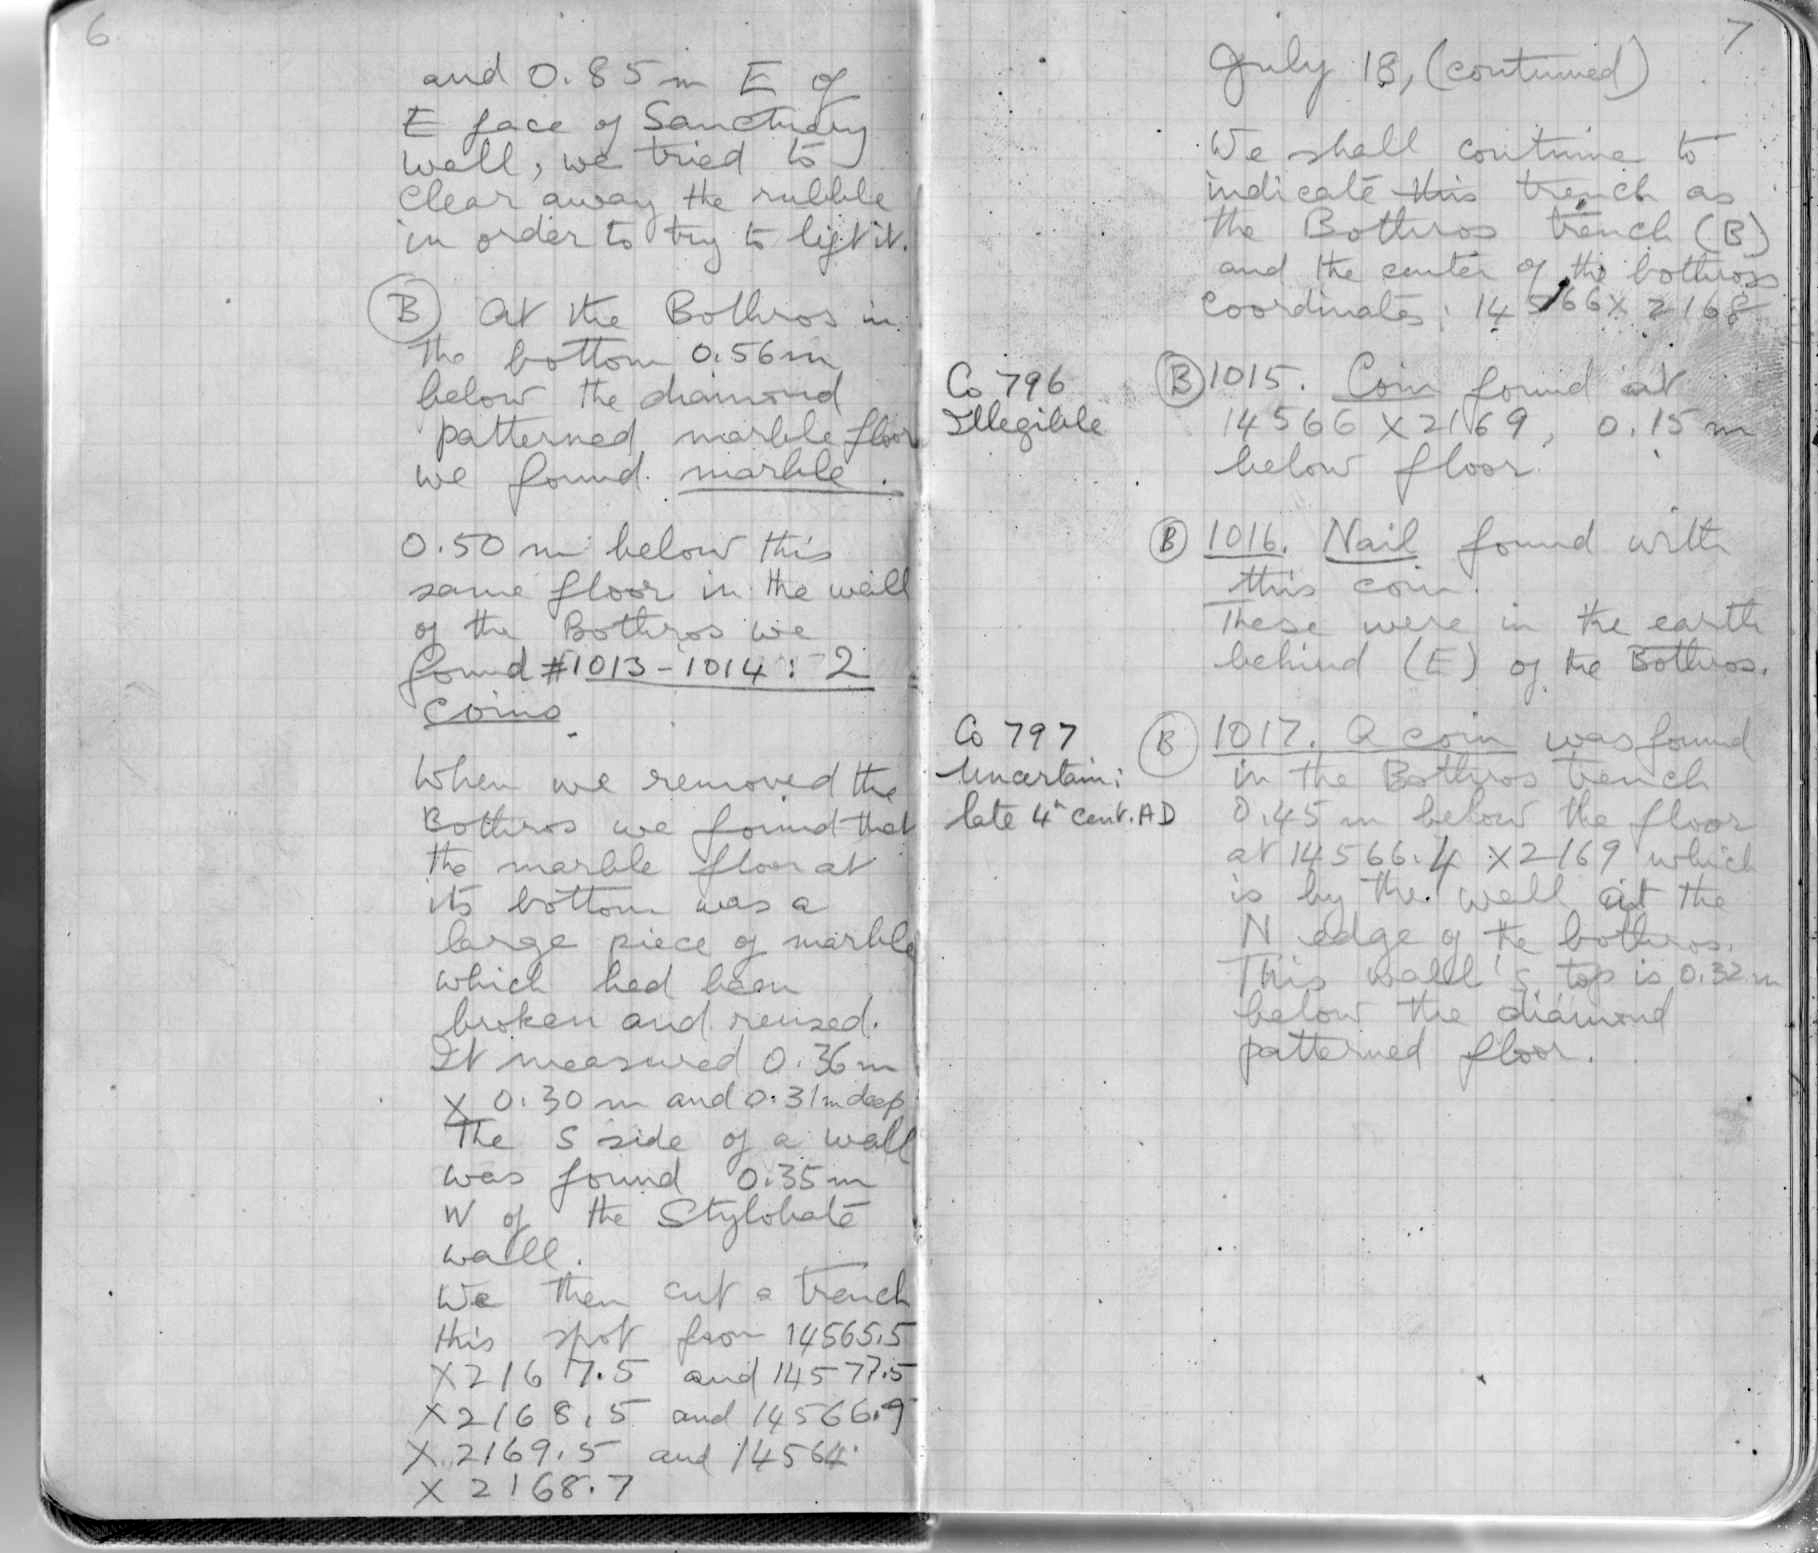 6
and 0.85 m E of
E face of Sanctuary
wall, we tried to
clear away the rubble
in order to try to lift it.
B At the Bothros in
the bottom 0.56 m
below the diamond
patterned marble floor
we found marble.
0.50 m below this
same floor in the wall
of the Bothros we
found #1013-1014: 2
coins.
When we removed the
Bothros we found that
the marble floor at
its bottom was a
large piece of marble
which had been
broken and reused.
It measured 0.36 m
X 0.30 m and 0.31 m deep
The S side of a wall
was found 0.35 m
W of the Stylobate
wall.
We then cut a trench
this spot from 14565.5
X 2167.5 and 14577.5
X 2168.5 and 14566.9
X 2169.5 and 14564
X 2168.7
7
July 18, (continued)
We shall continue to
indicate this trench as
the Bothros trench (B)
and the center of the bothros
coordinates: 14566 X 2168
Co 796
Illegible
B 1015. Coin found at
14566 X 2169, 0.15 m
below floor.
B 1016. Nail found with
this coin.
These were in the earth
behind (E) of the Bothros.
Co 797
Uncertain:
late 4th cent. AD
B 1017. A coin was found
in the Bothros trench
0.45 m below the floor
at 14566.4 X 2169 which
is by the wall at the
N edge of the bothros.
This wall's top is 0.32 m
below the diamond
patterned floor.